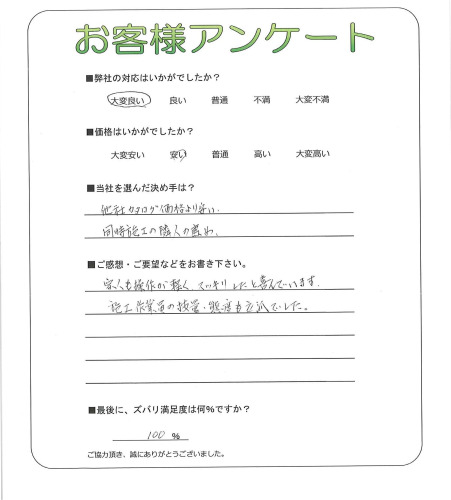 お客様アンケート
■弊社の対応はいかがでしたか？
大変良い 良い 普通 不満 大変不満
■価格はいかがでしたか？
大変安い 安い 普通 高い 大変高い
■当社を選んだ決め手は？
他社カタログ価格より安い．
同時施工の隣人の薦め．
■ご感想・ご要望などをお書き下さい。
家人も操作が軽く、スッキリしたと喜んでいます．
施工作業員の技量・態度も立派でした。
■最後に、ズバリ満足度は何％ですか？
100 ％
ご協力頂き、誠にありがとうございました。